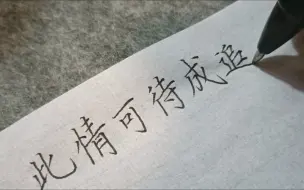 此情可待成追